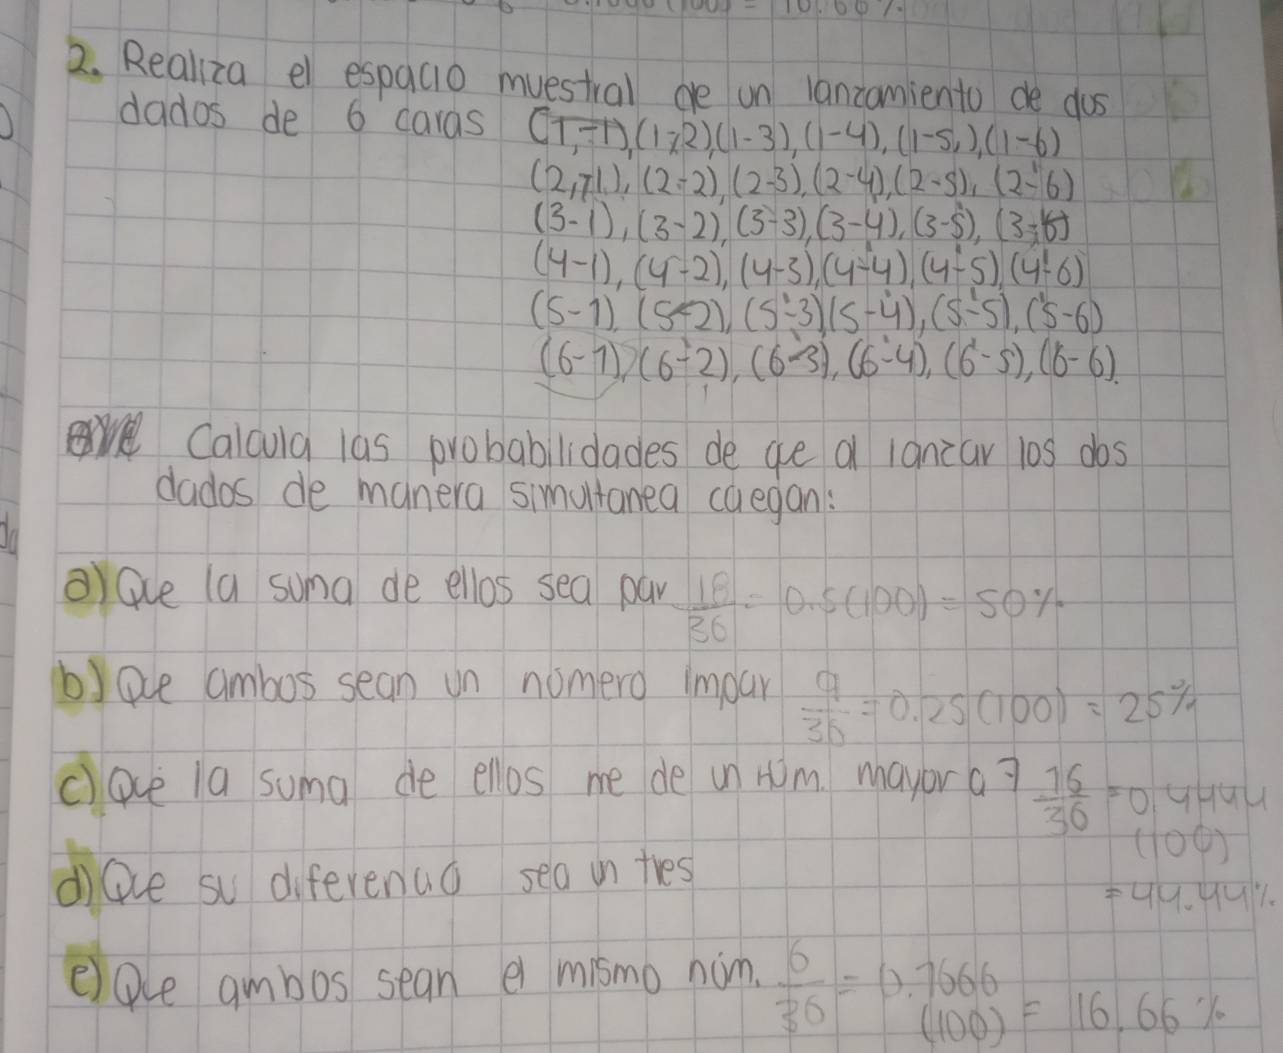 2. Realiza el espacio muestral de un lanzamiento de dos
dados de 6 caras (1,-1), (1-2), (1-3), (1-4), (1-5), (1-6)
(2,-1), (2-2), (2-3), (2-4), (2-5), (2-6)
(3-1), (3-2), (3-3), (3-4), (3-5), (3-6)
(4-1), (4-2), (4-3), (4-4), (4-5), (4-6)
(5-1), (5-2), (5-3) (5-4), (5-5), (5-6)
(6-1), (6-2), (6-3), (6-4), (6-5), (6-6).
Calcula las probabilidades de qe al lanzar los dos
dados de manera simultanea caegan:
a) Que la suma de ellos sea par 18/36 = 0.5(100) = 50%
b) Que ambos sean un número impar 9/36 = 0.25(100) = 25%
c) Que la suma de ellos me de un núm. mayor a 7 16/36 = 0.4444
(100)
= 44.44%
d) Que su diferencia sea un tres
e) Que ambos sean el mismo núm. 6/36 = 0.1666
(100) = 16.66%